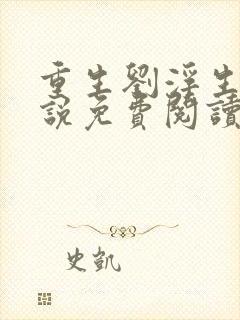 重生劉淫生
說免費閱讀
史凱